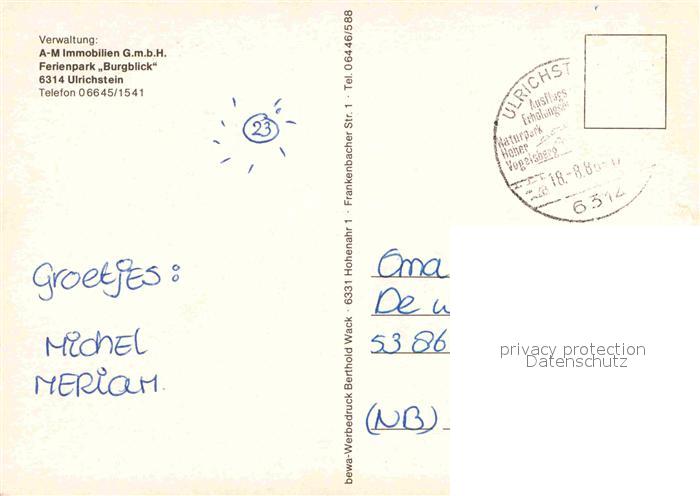 Verwaltung:
A-M Immobilien G.m.b.H.
Ferienpark „Burgblick"
6314 Ulrichstein
Telefon 06645/1541
23
Groetjes:
Michel
Meriam.
bewa-Werbedruck Berthold Wack · 6331 Hohenahr 1 · Frankenbacher Str. 1 · Tel. 06446/588
ULRICHST
Ausflugs
Erholungs
Naturpark
Hoher
Vogelsberg
18.-8.86
6314
Oma
De
5386
(NB)
privacy protection
Datenschutz